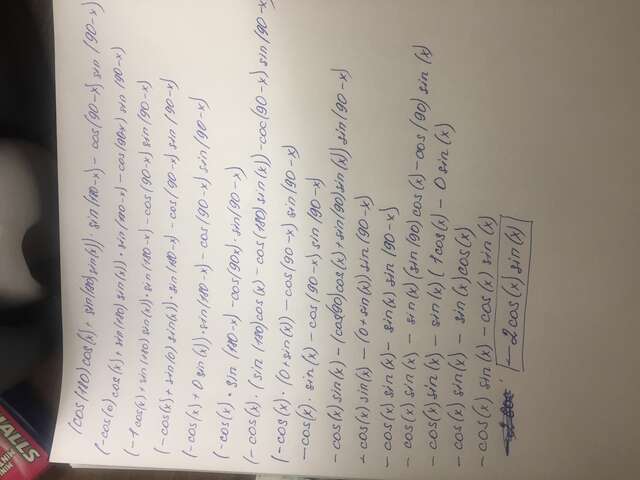 HALLS
(cos(180)cos(x)+sin(180)sin(x))·sin(180-x)-cos(90-x)sin(90-x)
(-cos(0)cos(x)+sin(180)sin(x))·sin(180-x)-cos(90-x)sin(90-x)
(-1cos(x)+sin(180)sin(x))·sin(180-x)-cos(90-x)sin(90-x)
(-cos(x)+sin(0)sin(x))·sin(180-x)-cos(90-x)sin(90-x)
(-cos(x)+0sin(x))·sin(180-x)-cos(90-x)sin(90-x)
(-cos(x)·sin(180-x)-cos(90x)·sin(90-x)
(-cos(x)·(sin(180)cos(x)-cos(180)sin(x))-coc(90-x)sin(90-x
(-cos(x)·(0+sin(x))-cos(90-x)sin(90-x)
-cos(x)·sin(x)-cos(90-x)sin(90-x)
-cos(x)sin(x)-(cos(90)cos(x)+sin(90)sin(x))sin(90-x)
-cos(x)sin(x)-(0+sin(x))sin(90-x)
-cos(x)sin(x)-sin(x)sin(90-x)
-cos(x)sin(x)-sin(x)(sin(90)cos(x)-cos(90)sin(x)
-cos(x)sin(x)-sin(x)(1cos(x)-0sin(x)
-cos(x)sin(x)-sin(x)cos(x)
-cos(x)sin(x)-cos(x)sin(x)
-2cos(x)sin(x)